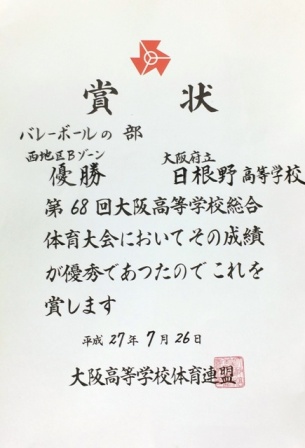 賞状
バレーボールの 部
西地区Bゾーン 大阪府立
優勝 日根野高等学校
第68回大阪高等学校総合
体育大会においてその成績
が優秀であつたのでこれを
賞します
平成27年7月26日
大阪高等学校体育連盟